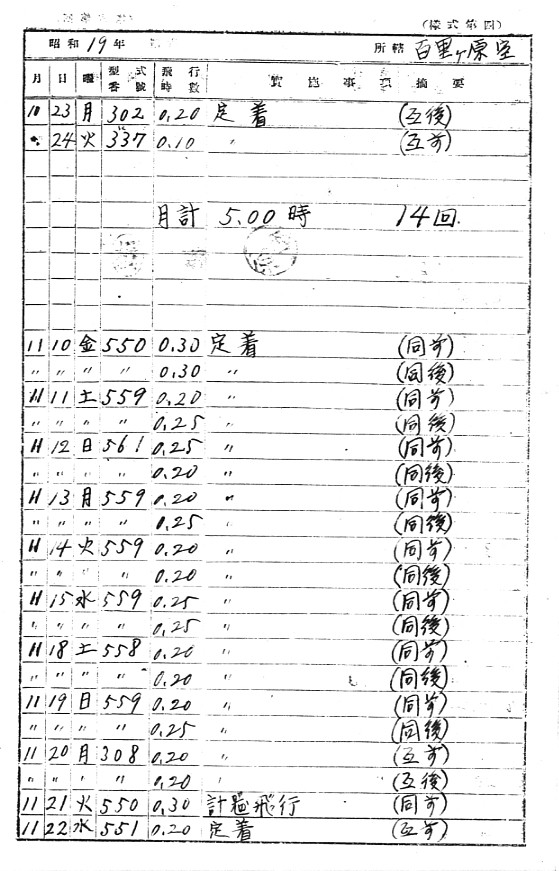 (様式第四)
昭和19年 所轄 百里ヶ原空
月 日 曜 型式番號 飛行時數 實施事項 摘要
10 23 月 302 0.20 定着 (互後)
〃 24 火 337 0.10 〃 (互前)
月計 5.00時 14回
11 10 金 550 0.30 定着 (同前)
〃 〃 〃 〃 0.30 〃 (同後)
11 11 土 559 0.20 〃 (同前)
〃 〃 〃 〃 0.25 〃 (同後)
11 12 日 561 0.25 〃 (同前)
〃 〃 〃 〃 0.20 〃 (同後)
11 13 月 559 0.20 〃 (同前)
〃 〃 〃 〃 0.25 〃 (同後)
11 14 火 559 0.20 〃 (同前)
〃 〃 〃 〃 0.20 〃 (同後)
11 15 水 559 0.25 〃 (同前)
〃 〃 〃 〃 0.25 〃 (同後)
11 18 土 558 0.20 〃 (同前)
〃 〃 〃 〃 0.20 〃 (同後)
11 19 日 559 0.20 〃 (同前)
〃 〃 〃 〃 0.25 〃 (同後)
11 20 月 308 0.20 〃 (互前)
〃 〃 〃 〃 0.20 〃 (互後)
11 21 火 550 0.30 計器飛行 (同前)
11 22 水 551 0.20 定着 (互前)